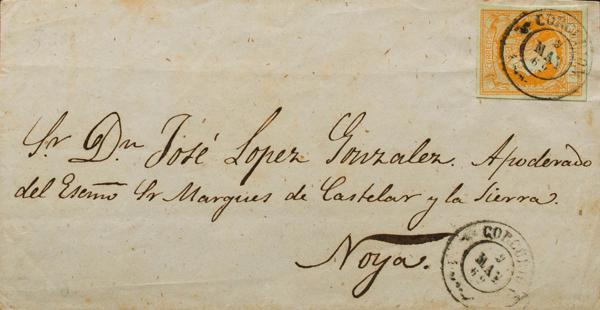 CORCUBION
9
MAY
62
Sr. Dn José Lopez Gonzalez. Apoderado
del Escmo Sr Marques de Castelar y la Sierra.
Noya.
CORCUBION
9
MAY
62